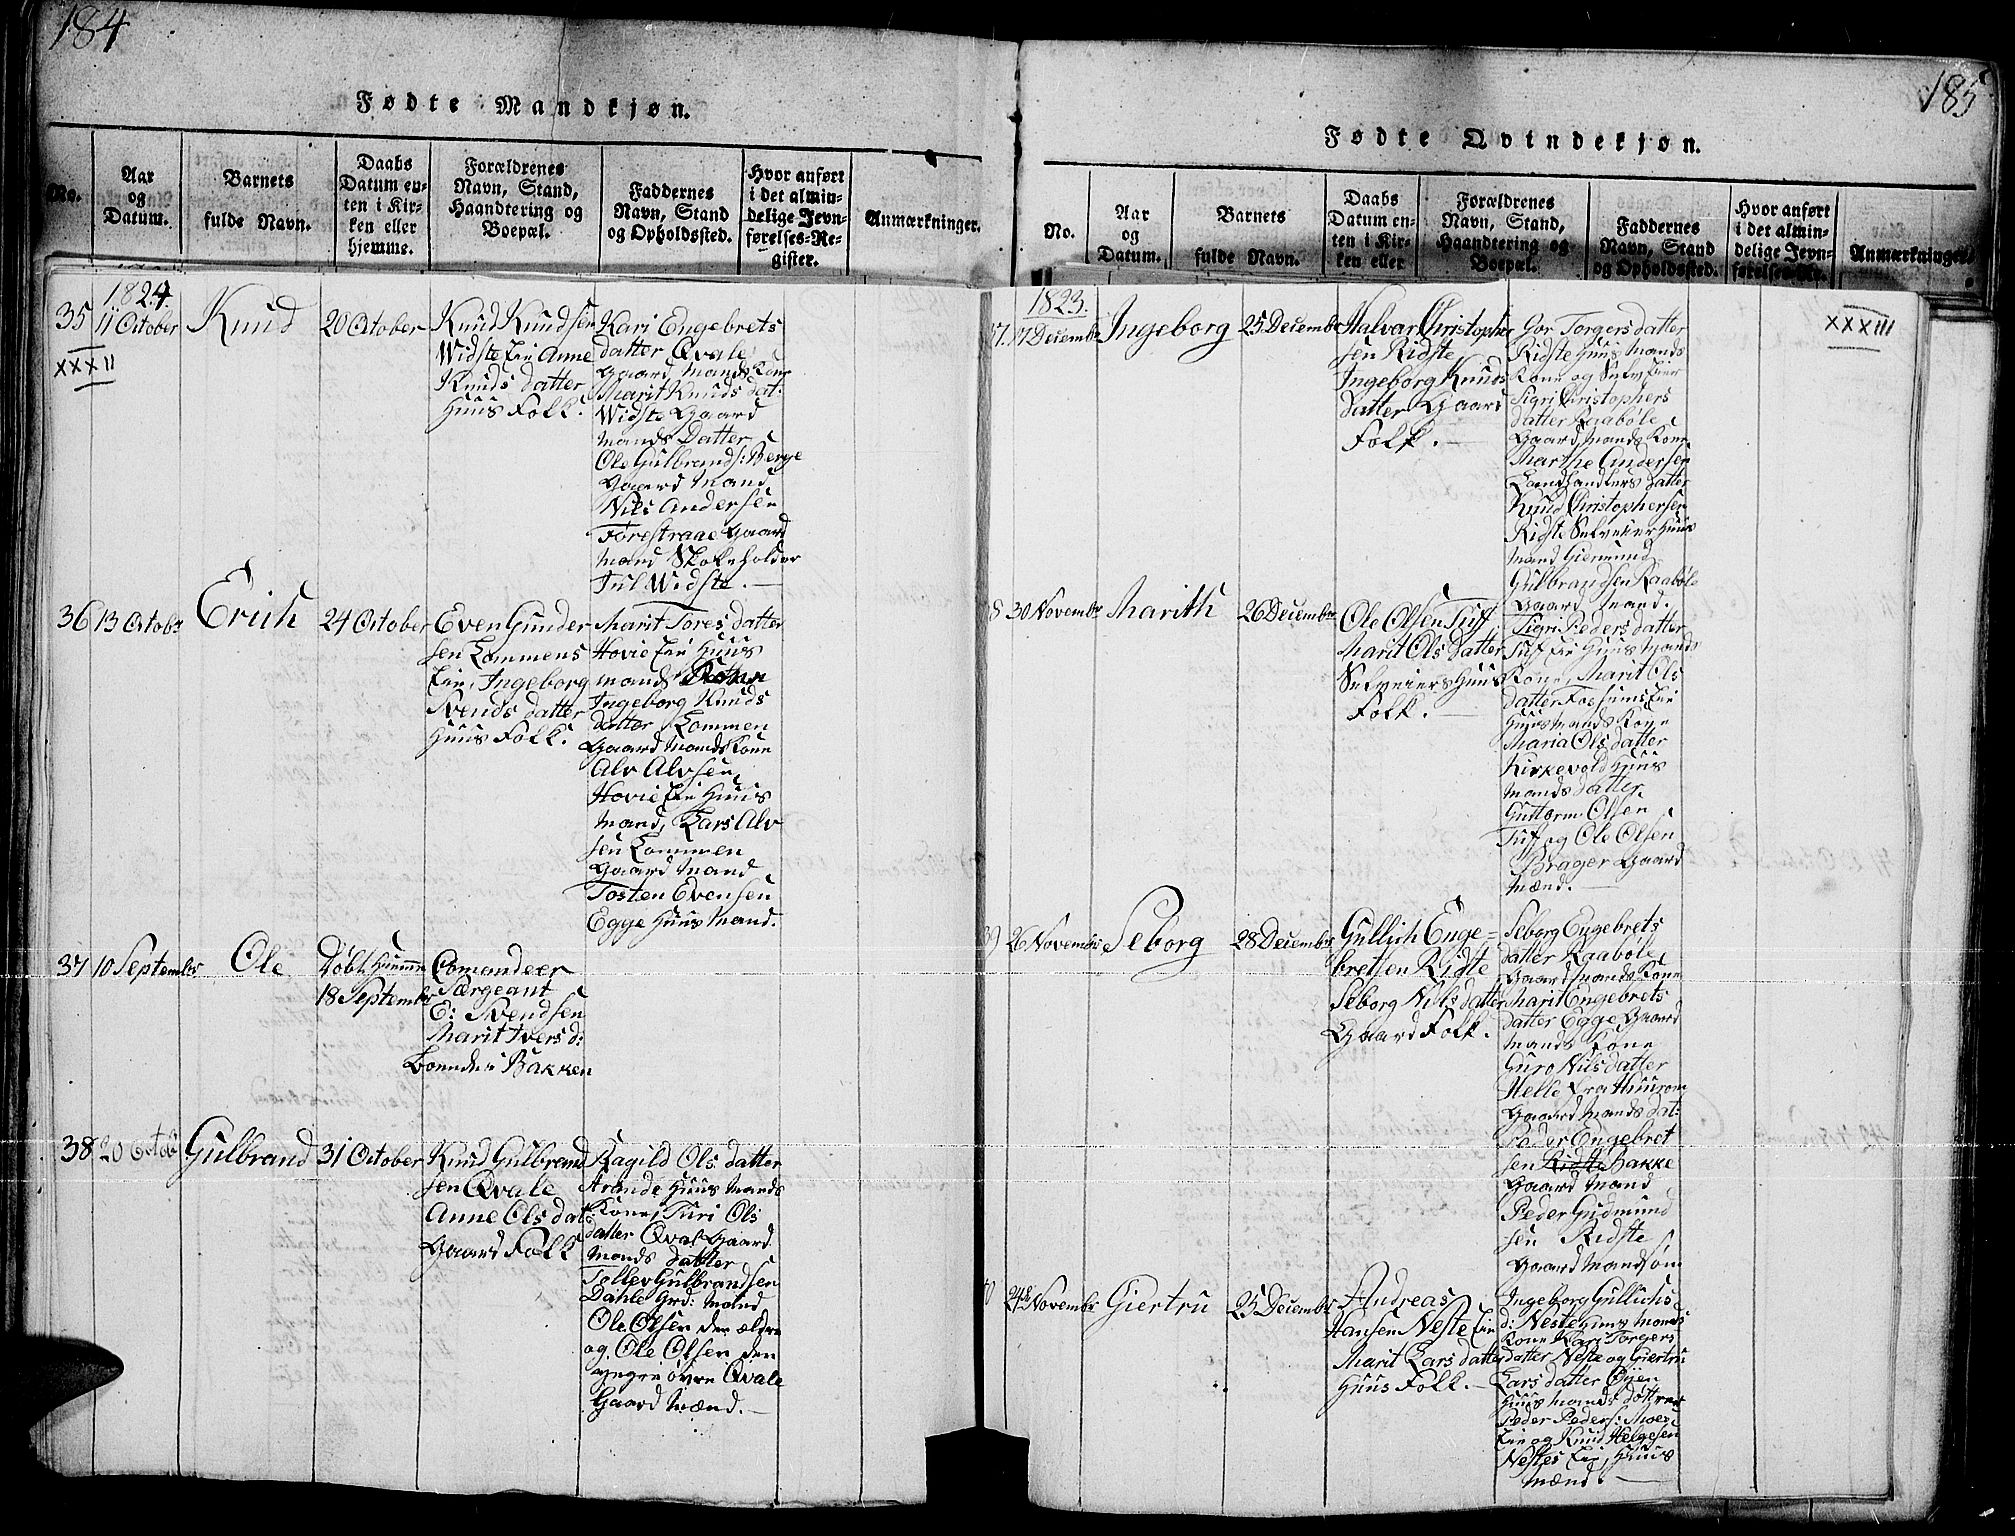 184
Fødte Mandkjøn.
No.
Aar
og
Datum.
Barnets
fulde Navn.
Daabs
Datum en-
ten i Kir-
ken eller
hjemme.
Forældrenes
Navn, Stand,
Haandtering og
Boepæl.
Faddernes
Navn, Stand
og Opholdssted.
Hvor anført
i det almin-
delige Jevn-
førelses-Re-
gister.
Anmærkninger.
1824.
35
XXXII
11 October
Knud
20 October
Knud Knudsen
Widste Eie Anne
Knuds datter
Huus Folk.
Kari Engebrets
datter Qvale
Gaard Mands Kone
Marit Knuds dat:
Widste Gaard
Mands Datter
Ole Gulbrands: Berge
Gaard Mand
Nils Andersen
Forestraae Gaard
Mand Skoleholder
Jul Widste.
36
13 Octobr
Erich
24 October
Even Gunder
sen Lommens
Eie, Ingeborg
Svends datter
Huus Folk.
Marit Tores datter
Hovie Eie Huus
mands Kone
Ingeborg Knuds
datter Lommen
Gaard Mands Kone
Alv Alvsen
Hovie Eie Huus
Mand, Lars Alv
sen Lommen
Gaard Mand
Tosten Evensen
Egge Huus Mand.
37
10 September
Ole
Døbt Hiemme
18 Septembr
Comandeer
Særgeant
E: Svendsen
Marit Ivers d:
Boende i Bakken
38
20 Octobr
Gulbrand
31 October
Knud Gulbrand
sen Qvale
Anne Ols dat:
Gaard Folk
Ragild Ols datter
Strande Huus Mands
Kone, Turi Ols
datter Qvale Gaard
Mands datter
Tollev Gulbrandsen
Dahle Grd: Mand
Ole Olsen den ældre
og Ole Olsen den
yngre øvre Qvale
Gaard Mænd.
185
Fødte Qvindekjøn.
No.
Aar
og
Datum.
Barnets
fulde Navn.
Daabs
Datum en-
ten i Kir-
ken eller
Forældrenes
Navn, Stand,
Haandtering og
Boepæl.
Faddernes
Navn, Stand
og Opholdssted.
Hvor anført
i det almin-
delige Jevn-
førelses-Re-
Anmærkninger.
1823.
XXXIII
37.
17 Decembr
Ingeborg
25 Decembr
Halvar Christopher
sen Ridste
Ingeborg Knuds
datter Gaard
Folk.
Gor Torgers datter
Ridste Huus Mands
Kone og Selv Eier
Sigri Christophers
datter Raabøle
Gaard Mands Kone
Marthe Andersen
Landhandlers datter
Knud Christophersen
Ridste Selveier Huus
Mand Giermund
Gulbrandsen Raabøle
Gaard Mand.
8
30 Novembr
Marith
26 Decembr
Ole Olsen Tuf
Marit Ols datter
Selveiers Huus
Folk.
Sigri Peders datter
Tuf Eie Huus Mands
Kone, Marit Ols
datter Fossums Eie
Huus Mands Kone
Maria Ols datter
Kirkevold Huus
Mands datter.
Guttorm Olsen
Tuf og Ole Olsen
Brager Gaard
Mænd.
39
26 Novembr
Seborg
28 Decembr
Gullich Enge=
bretsen Ridste
Seborg Nils datter
Gaard Folk.
Seborg Engebrets
datter Raabøle
Gaard Mands Kone
Marit Engebrets
datter Egge Gaard
Mands Kone
Guro Nils datter
Helle fra Huurom
Gaard Mands dat:
Peder Engebret
sen Ridste Bakke
Gaard Mand
Peder Gudmund
sen Ridste
Gaard Mands søn
40
24de Novembr
Giertru
25 Decembr
Andreas
Hansen Neste Eie
Marit Lars datter
Huus Folk.
Ingeborg Gullichs
d: Neste Huus Mands
Kone Kari Torgers
datter Neste og Giertru
Lars datter Øyen
Huus Mands døttrer
Peder Peders: Moe
Eie og Knud Helgesen
Nestes Eie, Huus
Mænd.